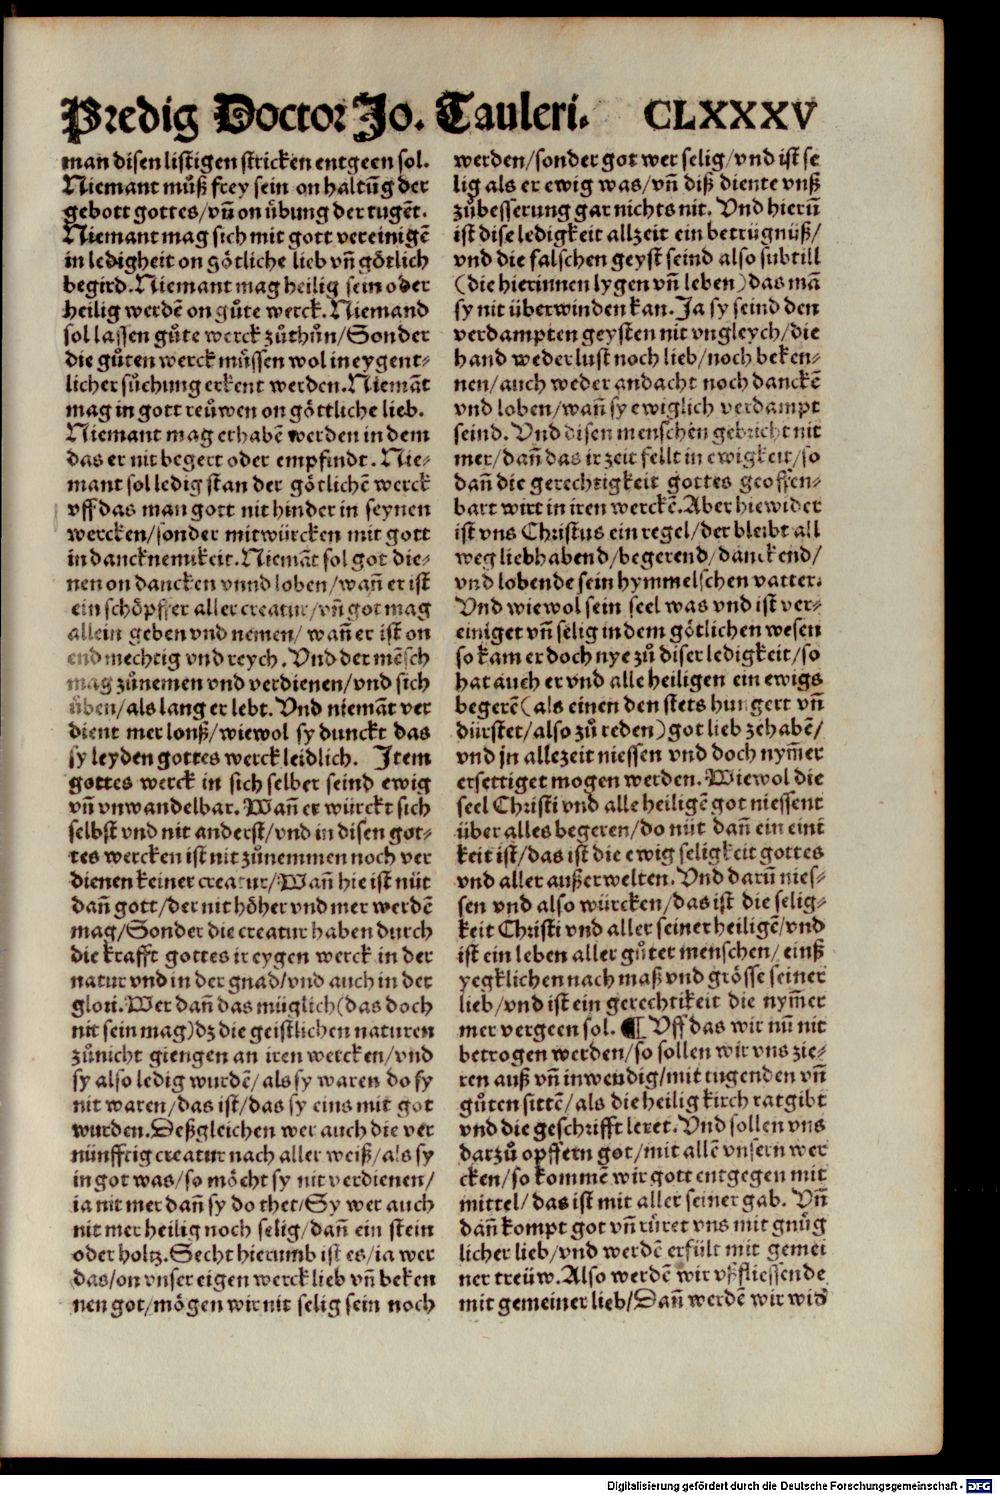 Predig Doctor Jo. Tauleri. CLXXXV
man disen listigen stricken entgeen sol.
Niemant můß frey sein on haltūg der
gebott gottes/vn̄ on übung der tugēt.
Niemant mag sich mit gott vereinigē
in ledigheit on götliche lieb vn̄ götlich
begird. Niemant mag heilig sein oder
heilig werdē on gůte werck. Niemand
sol lassen gůte werck zůthůn/Sonder
die gůten werck müssen wol in eygent-
licher sůchung erkent werden. Niemāt
mag in gott reüwen on göttliche lieb.
Niemant mag erhabē werden in dem
das er nit begert oder empfindt. Nie-
mant sol ledig stan der götlichē werck
vff das man gott nit hinder in seynen
wercken/sonder mitwürcken mit gott
in dancknemikeit. Niemāt sol got die-
nen on dancken vnnd loben/wan̄ er ist
ein schöpffer aller creatur/vn̄ got mag
allein geben vnd nemen/ wan̄ er ist on
end mechtig vnd reych. Vnd der mēsch
mag zůnemen vnd verdienen/vnd sich
üben/als lang er lebt. Vnd niemāt ver
dient mer lonß/wiewol sy dunckt das
sy leyden gottes werck leidlich. Item
gottes werck in sich selber seind ewig
vn̄ vnwandelbar. Wan̄ er würckt sich
selbst vnd nit anderst/vnd in disen got-
tes wercken ist nit zůnemmen noch ver
dienen keiner creatur/Wan̄ hie ist nüt
dan̄ gott/der nit höher vnd mer werdē
mag/Sonder die creatur haben durch
die krafft gottes ir eygen werck in der
natur vnd in der gnad/vnd auch in der
glori. Wer dan̄ das müglich(das doch
nit sein mag)dz die geistlichen naturen
zůnicht giengen an iren wercken/vnd
sy also ledig wurdē/als sy waren do sy
nit waren/das ist/das sy eins mit got
wurden. Deßgleichen wer auch die ver
nünfftig creatur nach aller weiß/als sy
in got was/so möcht sy nit verdienen/
ia nit mer dan̄ sy do thet/Sy wer auch
nit mer heilig noch selig/dan̄ ein stein
oder holtz. Secht hierumb ist es/ia wer
das/on vnser eigen werck lieb vn̄ beken
nen got/mögen wir nit selig sein noch
werden/sonder got wer selig/vnd ist se
lig als er ewig was/vn̄ diß diente vnß
zůbesserung gar nichts nit. Vnd hierū
ist dise ledigkeit allzeit ein betrügnüß/
vnd die falschen geyst seind also subtill
(die hierinnen lygen vn̄ leben)das mā
sy nit überwinden kan. Ja sy seind den
verdampten geysten nit vngleych/die
hand weder lust noch lieb/noch beken-
nen/auch weder andacht noch danckē
vnd loben/wan̄ sy ewiglich verdampt
seind. Vnd disen menschen gebricht nit
mer/dan̄ das ir zeit fellt in ewigkeit/so
dan̄ die gerechtigkeit gottes geoffen-
bart wirt in iren werckē. Aber hiewider
ist vns Christus ein regel/der bleibt all
weg liebhabend/begerend/danckend/
vnd lobende sein hymmelschen vatter.
Vnd wiewol sein seel was vnd ist ver-
einiget vn̄ selig in dem götlichen wesen
so kam er doch nye zů diser ledigkeit/so
hat auch er vnd alle heiligen ein ewigs
begerē(als einen den stets hungert vn̄
dürstet/also zů reden)got lieb zehabē/
vnd jn allezeit niessen vnd doch nym̄er
ersettiget mogen werden. Wiewol die
seel Christi vnd alle heiligē got niessent
über alles begeren/do nüt dan̄ ein eini
keit ist/das ist die ewig seligkeit gottes
vnd aller außerwelten. Vnd darū nies-
sen vnd also würcken/das ist die selig-
keit Christi vnd aller seiner heiligē/vnd
ist ein leben aller gůter menschen/ einß
yegklichen nach maß vnd grösse seiner
lieb/vnd ist ein gerechtikeit die nym̄er
mer vergeen sol. ¶ Vff das wir nū nit
betrogen werden/so sollen wir vns zie-
ren auß vn̄ inwendig/mit tugenden vn̄
gůten sittē/als die heilig kirch ratgibt
vnd die geschrifft leret. Vnd sollen vns
darzů opffern got/mit allē vnsern wer
cken/so kommē wir gott entgegen mit
mittel/das ist mit aller seiner gab. Vn̄
dan̄ kompt got vn̄ rüret vns mit gnüg
licher lieb/vnd werdē erfült mit gemei
ner treüw. Also werdē wir vßfliessende
mit gemeiner lieb/Dan̄ werdē wir wid
Digitalisierung gefördert durch die Deutsche Forschungsgemeinschaft - DFG